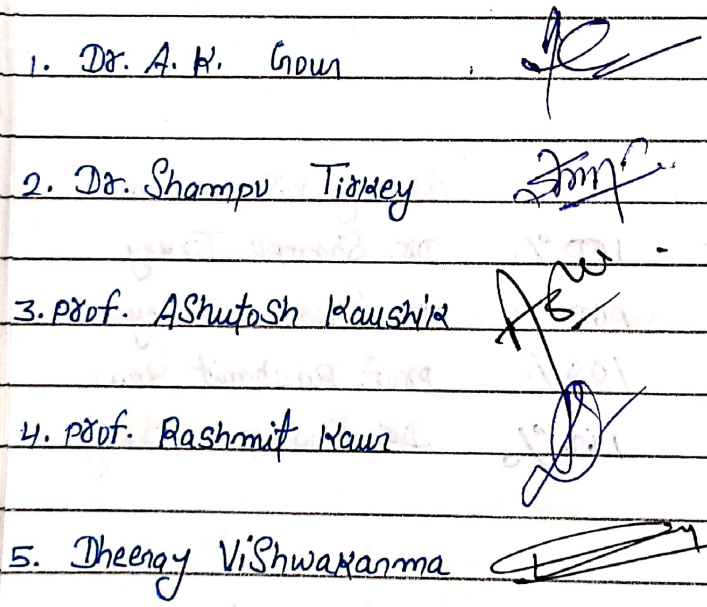 1. Dr. A. K. Gour
2. Dr. Shampu Tirkey
3. prof. AShutoSh Kaushik
4. prof. Rashmit Kaur
5. Dheeraj ViShwakarma